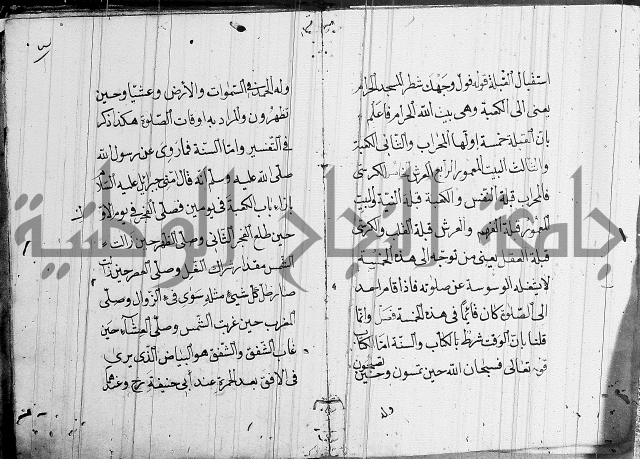 استقبال القبلة قوله فول وجهك شطر المسجد الحرام
يعنى الى الكعبة وهى بيت الله الحرام فاعلم
بان القبلة خمسة اولها المحراب والثانى الكعبة
والثالث البيت المعمور الرابع العرش الكرسى
فالمحراب قبلة النفس والكعبة قبلة والبيت
المعمور قبلة الفهم والعرش قبلة القلب والكرسى
قبلة العقل يعنى من توجه الى هذه الخمسة
لا يشغله الوسوسة عن صلوته فاذا قام احد
الى الصلوة كان قائما فى هذه الخمسة وانما
قلنا بان الوقت شرط بالكتاب والسنة اما الكتاب
قوله تعالى فسبحان الله حين تمسون وحين تصبحون
وله
وله الحمد فى السموات والارض وعشيا وحين
تظهرون والمراد به اوقات الصلوة هكذا ذكر
فى التفسير واما السنة فما روى عن رسول الله
صلى الله عليه وسلم انه قال امنى جبرائيل عليه السلام
بازاء باب الكعبة فى يومين فصلى الفجر فى يوم الاول
حين طلع الفجر الثانى وصلى الظهر حين زالت
الشمس مقدار شراك النعل وصلى العصر حين
صار ظل كل شئ مثله سوى فئ الزوال وصلى
المغرب حين غربت الشمس وصلى العشاء حين
غاب الشفق والشفق هو البياض الذى يرى
فى الافق بعد الحمرة عند ابى حنيفة رح وعندهما
جامعة النجاح الوطنية